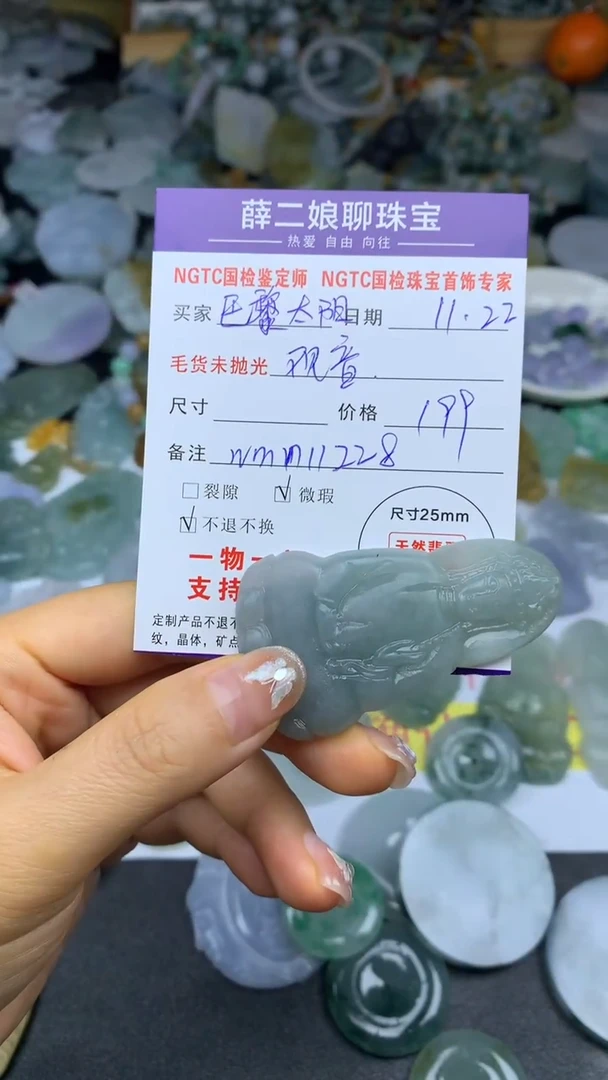 薛二娘聊珠宝
热爱 自由 向往
NGTC国检鉴定师 NGTC国检珠宝首饰专家
买家 巨馨太阳 日期 11.22
毛货未抛光 观音
尺寸 价格 199
备注 wmm11228
裂隙 微瑕
不退不换
尺寸25mm
一物一
支持
定制产品不退不
纹，晶体，矿点